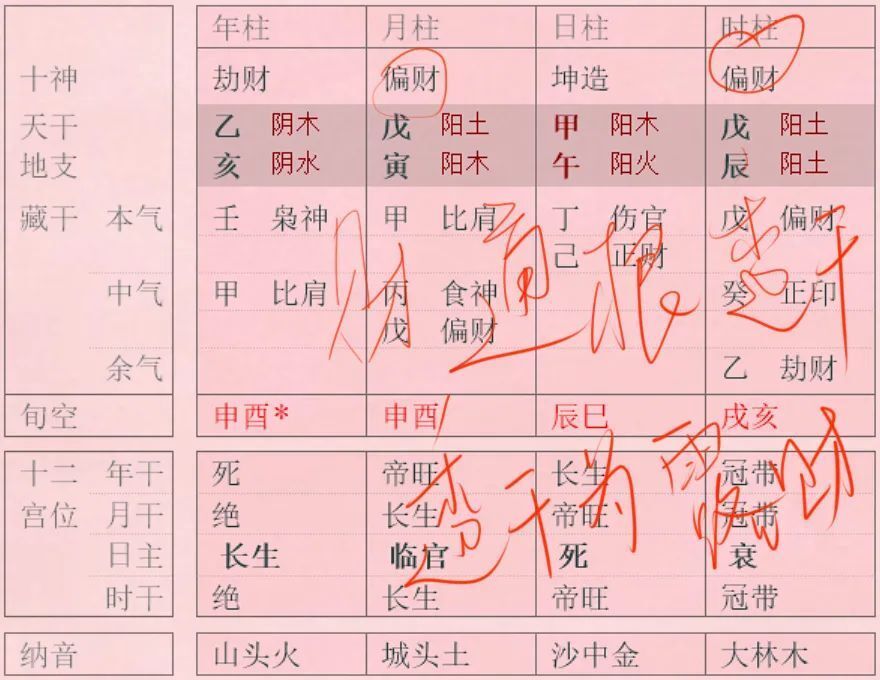 年柱 月柱 日柱 时柱
十神 劫财 偏财 坤造 偏财
天干 乙 阴木 戊 阳土 甲 阳木 戊 阳土
地支 亥 阴水 寅 阳木 午 阳火 辰 阳土
藏干 本气 壬 枭神 甲 比肩 丁 伤官 戊 偏财
己 正财
中气 甲 比肩 丙 食神 癸 正印
戊 偏财
余气 乙 劫财
财通根透干
旬空 申酉* 申酉 辰巳 戌亥
十二 年干 死 帝旺 长生 冠带
宫位 月干 绝 长生 帝旺 冠带
日主 长生 临官 死 衰
时干 绝 长生 帝旺 冠带
透干为露财
纳音 山头火 城头土 沙中金 大林木